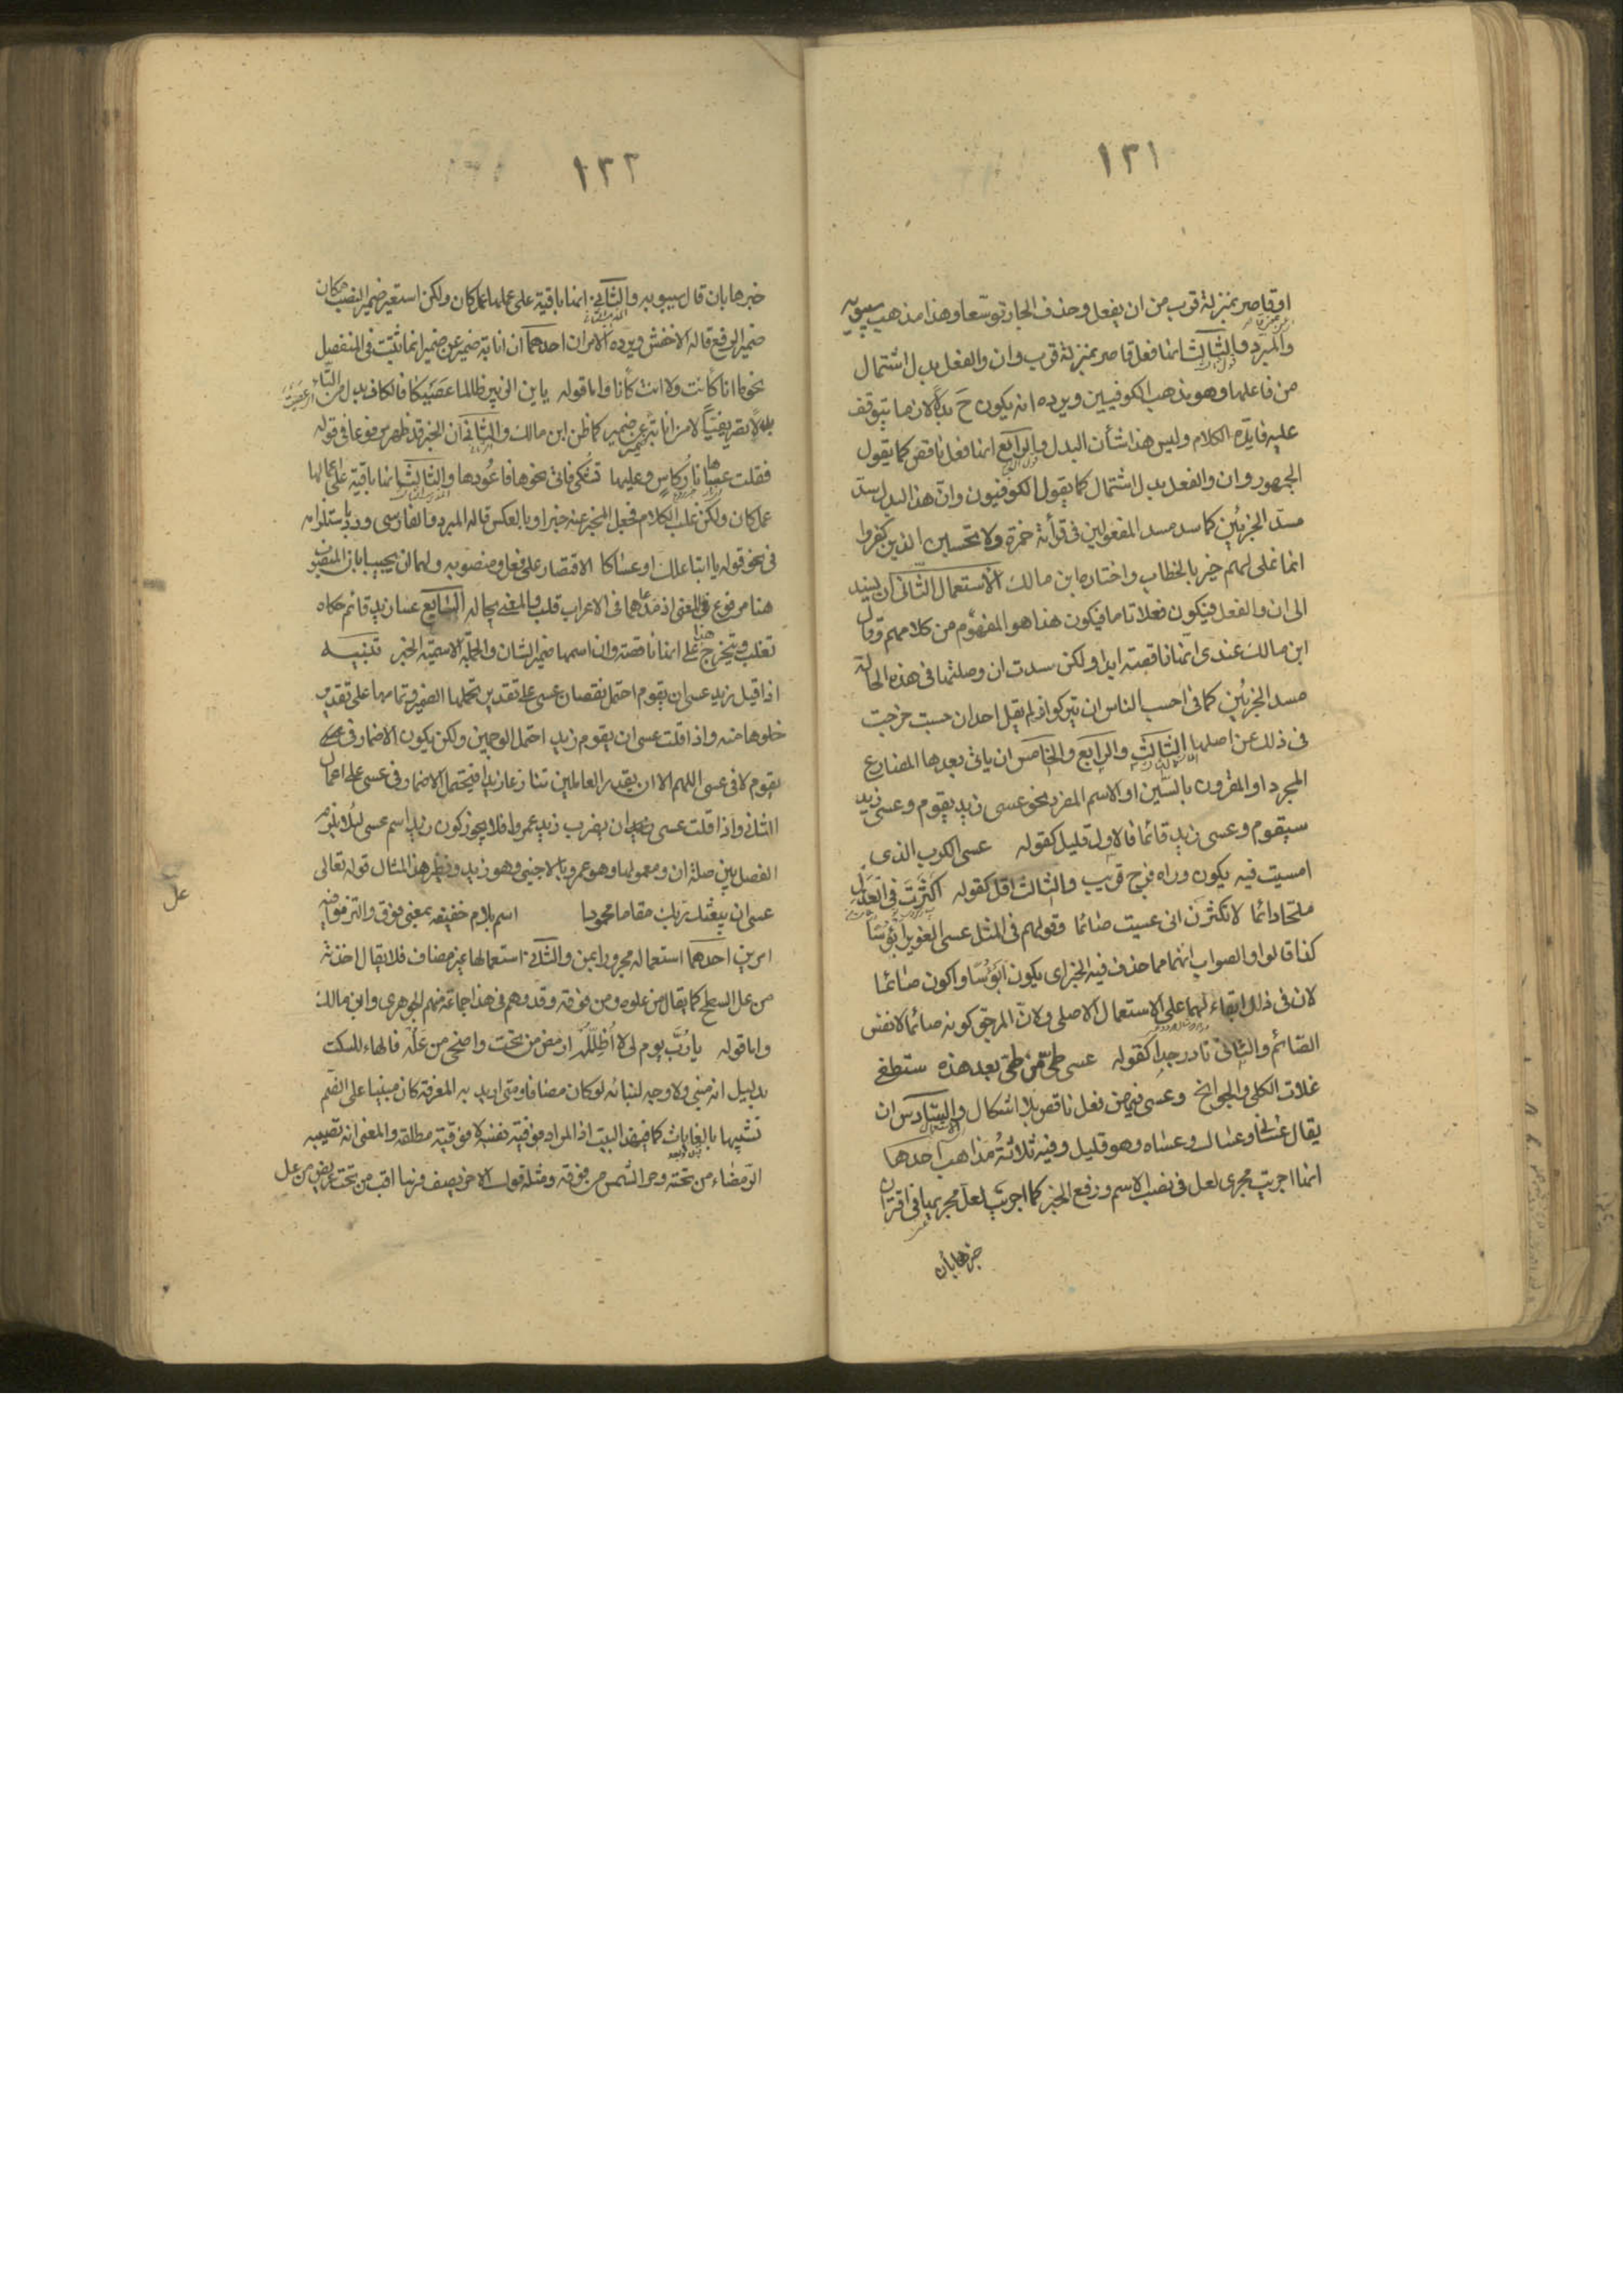 ١٢١
او قاصر بمنزلة قرب من ان يفعل وحذف الجار توسّعا وهذا مذهب سيبويه
والمبرد والثالث انها فعل قاصر بمنزلة قرب وان والفعل بدل اشتمال
من فاعلها وهو مذهب الكوفيين ويرده انه يكون ح بدلا لازما يتوقف
عليه فايدة الكلام وليس هذا شأن البدل والرابع انها فعل ناقص كما يقول
الجمهور وان والفعل بدل اشتمال كما يقول الكوفيون وانّ هذا البدل سدّ
مسدّ الجزئين كما سد مسد المفعولين في قرأءة حمزة ولا تحسبن الذين كفروا
انما نملى لهم خير بالخطاب واختاره ابن مالك الاستعمال الثانى ان يسند
الى ان والفعل فيكون فعلا تاما فيكون هذا هو المفهوم من كلامهم وقال
ابن مالك عندى انّها ناقصة ابدا ولكن سدت ان وصلتها في هذه الحالة
مسد الجزئين كما فى احسب الناس ان يتركوا اذ لم يقل احد ان حسبت خرجت
في ذلك عن اصلها الثالث والرابع والخامس ان ياتى بعدها المضارع
المجرد او المقرون بالسين او الاسم المفرد نحو عسى زيد يقوم وعسى زيد
سيقوم وعسى زيد قائما فالاول قليل كقوله عسى الكرب الذى
امسيت فيه يكون وراه فرج قريب والثالث اقل كقوله اكثرت في العذل
ملحّا دائما لا تكثرن انى عسيت صائما وقولهم في المثل عسى الغوير ابؤسًا
كذا قالوا والصواب انهما مما حذف فيه الخبر اى يكون ابؤسًا واكون صائما
لان في ذلك ابقاء لهما على الاستعمال الاصلى ولانّ المرجّو كونه صائما لا نفس
الصّائم والثانى نادر جدا كقوله عسى طىّ من طىّ بعد هذه ستطفى
غلات الكلى والجوانح وعسى فيهن فعل ناقص بلا اشكال والسّادس ان
يقال عسانى وعساك وعساه وهو قليل وفيه ثلاثة مذاهب احدها
انها اجريت مجرى لعل في نصب الاسم ورفع الخبر كما اجريت لعل مجريها في اقتران
خبرها بان
١٢٢
خبرها بان قال سيبويه والثّانى انها باقية على عملها عمل كان ولكن استعير ضمير النصب مكان
ضمير الرفع قاله الاخفش ويرده الامران احدهما ان انابة ضمير عن ضمير انما ثبتت في المنفصل
نحو ما انا كانت ولا انت كانا واما قوله يا بن الزبير طالما عصيكا فالكاف بدل من التاء
بدلا تصريفيا لا من انابة ضمير عن ضمير كما ظن ابن مالك والثانى ان الخبر قد ظهر مرفوعا في قوله
فقلت عساها نار كاس وعلها تشكّى فاتى نحوها فاعودها والثالث انها باقية على اعمالها
عمل كان ولكن قلب الكلام فجعل المخبر عنه خبرا وبالعكس قاله المبرد والفارسى ورد باستلزامه
في نحو قوله يا ابتا علك او عساكا الاقتصار على فعل ومنصوبه ولهما ان يجيبا بان المنصوب
هنا مرفوع في المعنى اذ مدّعاهما في الاعراب قلب والمعنى بحاله السّابع عسا زيد قائم حكاه
ثعلب ويتخرج هذا على انها ناقصة وان اسمها ضمير الشان والجملة الاسميّة الخبر تنبيه
اذا قيل زيد عسى ان يقوم احتمل نقصان عسى على تقدير تحملها الضمير وتمامها على تقدير
خلوها منه واذا قلت عسى ان يقوم زيد احتمل الوجهين ولكن يكون الاضمار في
يقوم لا في عسى اللهم الا ان يقدر العاملين تنازعا زيدا فيحتمل الاضمار في عسى على اعمال
الثانى واذا قلت عسى ان يضرب زيد عمروا فلا يجوز كون زيد اسم عسى لئلا يلزم
الفصل بين صلة ان ومعمولها وهو عمروا بالاجنبى وهو زيد ونظير هذا المثال قوله تعالى
عسى ان يبعثك ربك مقاما محمودا اسم بلام خفيفه بمعنى فوق والتزموا فيه
عل
امرين احدهما استعماله مجرورا بمن والثّانى استعمالها غير مضاف فلا يقال اخذته
من عل السطح كما يقال من علوه ومن فوقه وقد وهم في هذا جماعة منهم الجوهرى وابن مالك
واما قوله يا رُبّ يوم لى لا اُظلّله ارمض من تحت واضحى من عله فالهاء للسكت
بدليل انه مبنى ولا وجه لبنائه لو كان مضافا ومتى اريد به المعرفة كان مبنيا على الضّم
تشبيها بالغايات كما في هذا البيت اذا المراد فوقية نفسه لا فوقية مطلقه والمعنى انه تصيبه
الرّمضاء من تحته وحر الشمس من فوقه ومثله قول الاخر يصف فرسا اقب من تحت عريض من عل